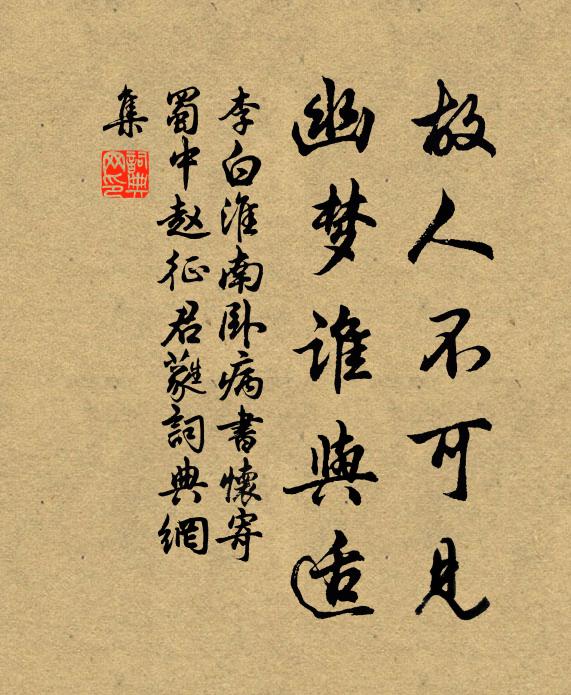 故人不可见
幽梦谁與适
李白淮南卧病書懷寄
蜀中赵征君蕤詞典網
集
詞典网印